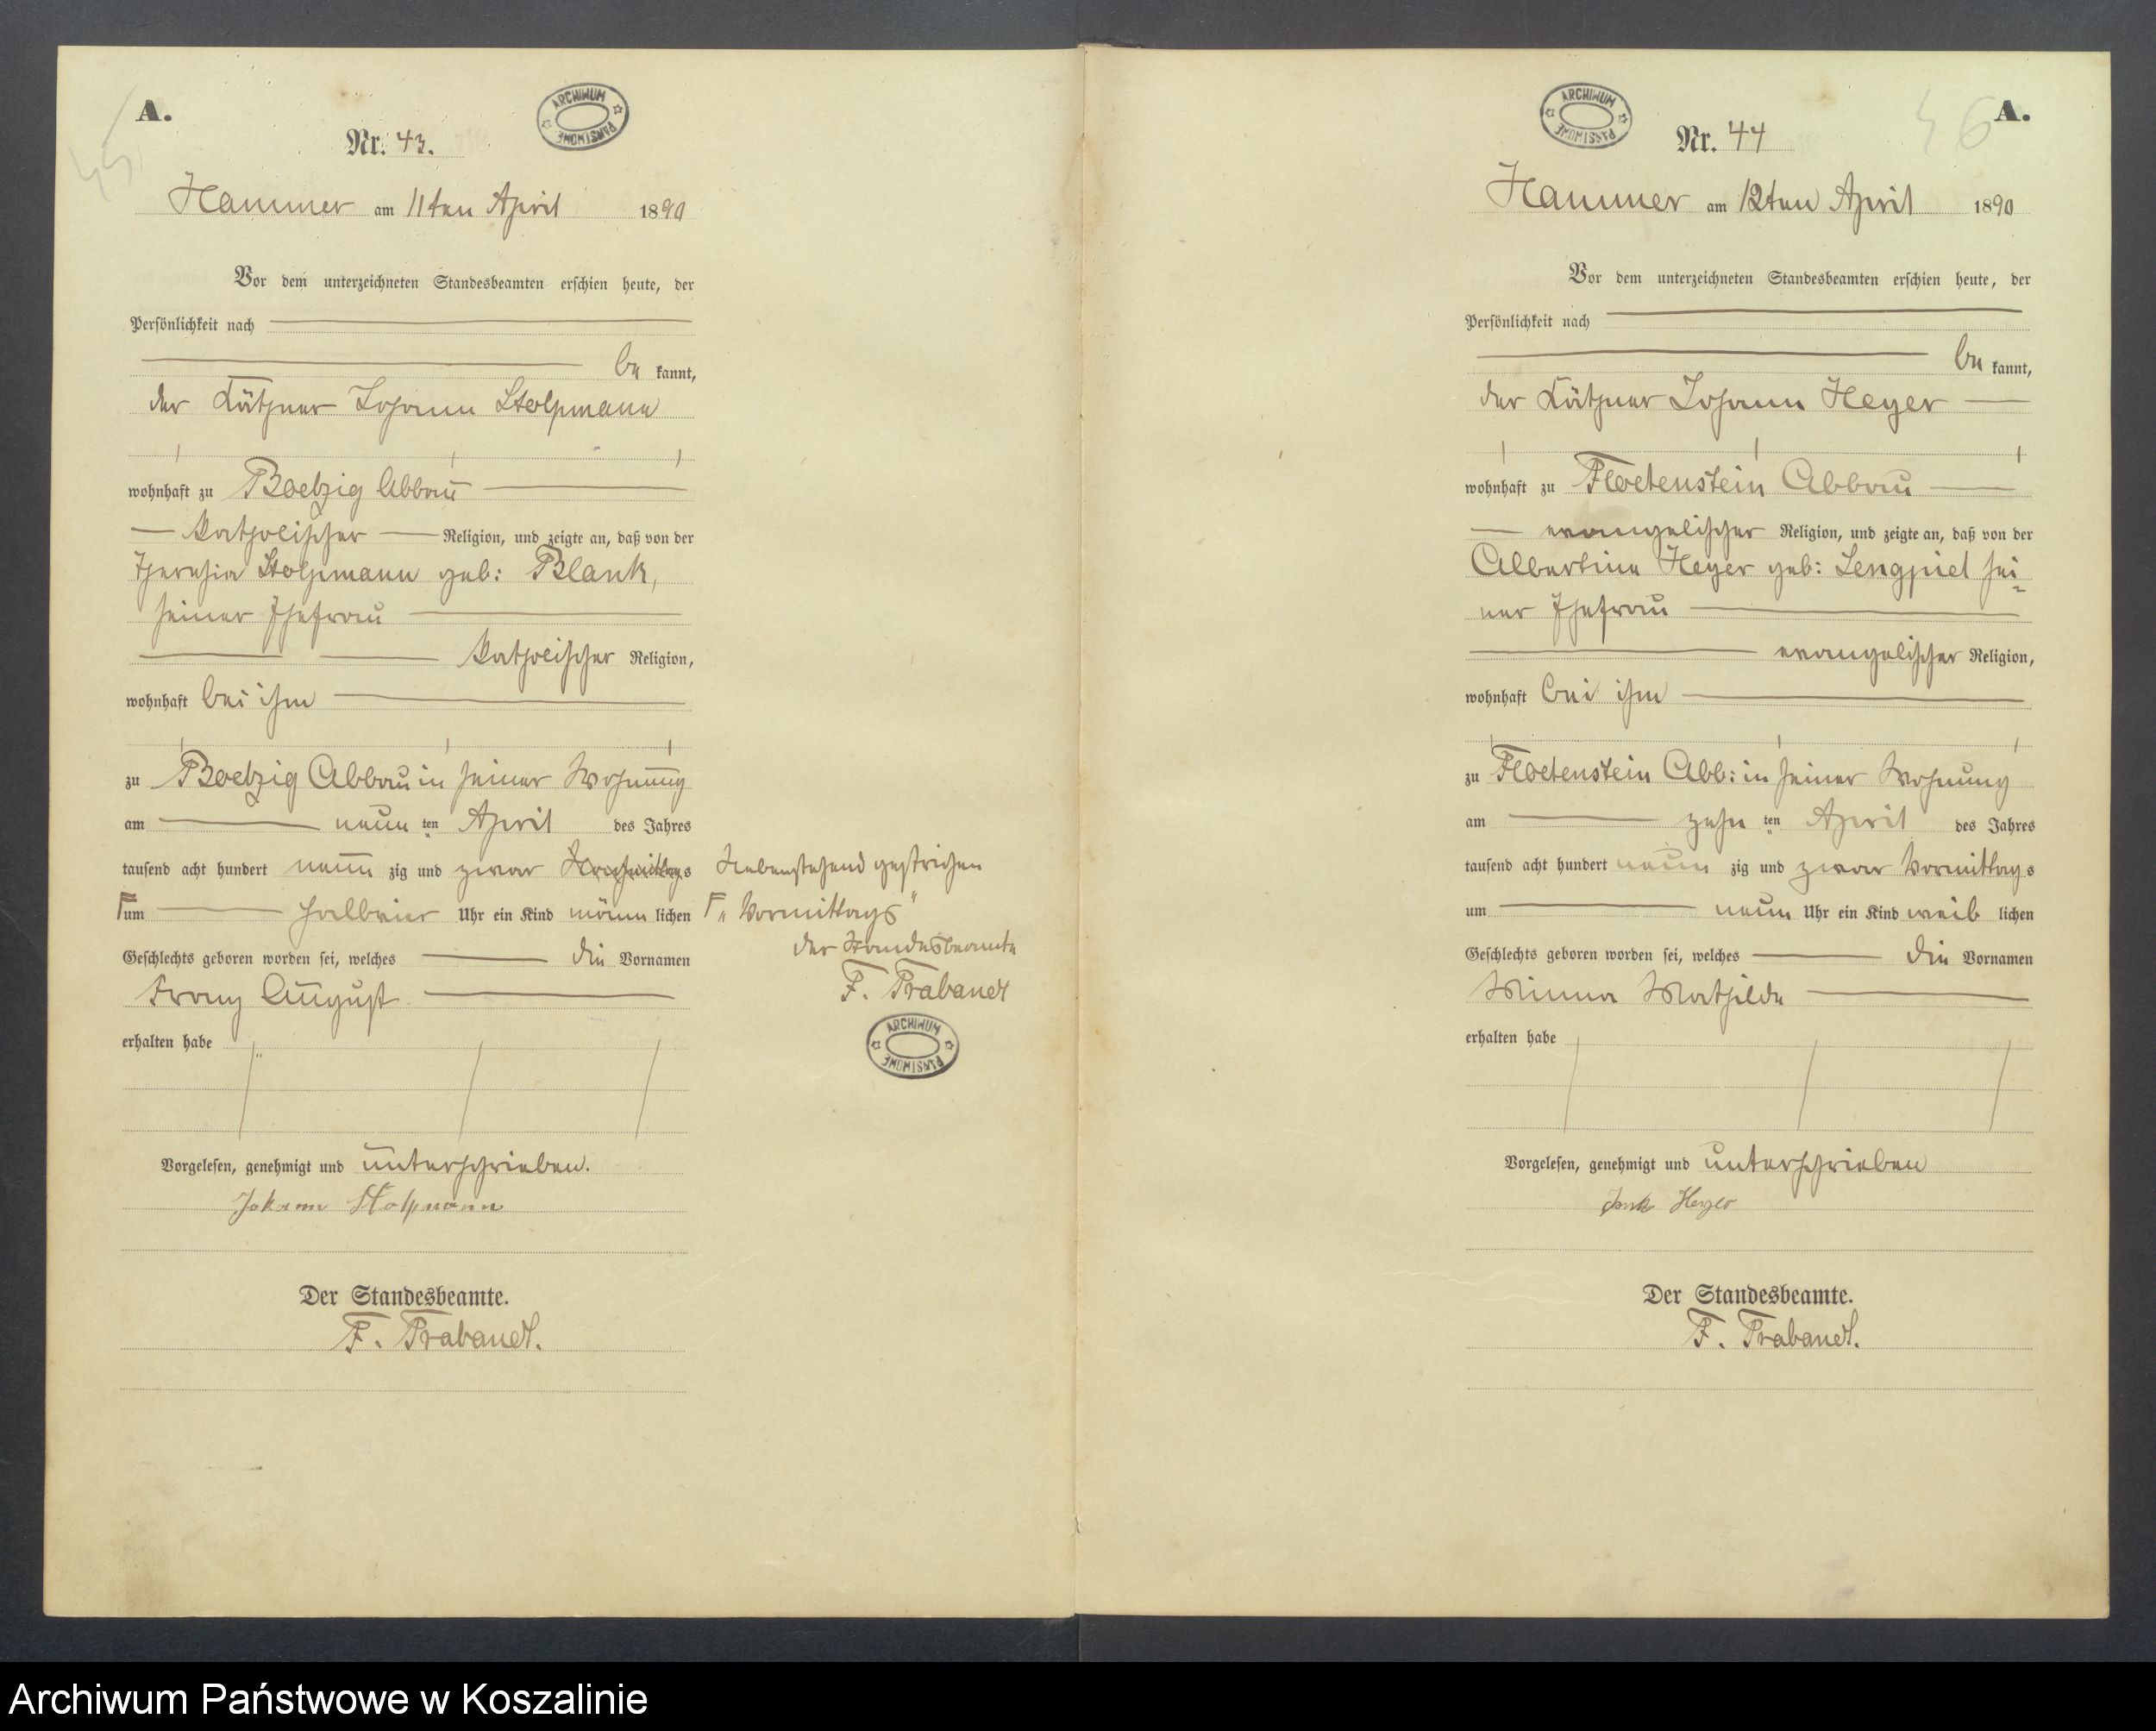 A.
45
ARCHIWUM PAŃSTWOWE
Nr. 43.
Hammer am 11ten April 1890
Vor dem unterzeichneten Standesbeamten erschien heute, der
Persönlichkeit nach
be kannt,
der Käthner Johann Stolpmann
wohnhaft zu Boelzig Abbau
katholischer Religion, und zeigte an, daß von der
Theresia Stolpmann geb: Blank,
seiner Ehefrau
katholischer Religion,
wohnhaft bei ihm
zu Boelzig Abbau in seiner Wohnung
am neun ten April des Jahres
tausend acht hundert neun zig und zwar Nachmittags
um halbvier Uhr ein Kind männ lichen
Geschlechts geboren worden sei, welches die Vornamen
Franz August
erhalten habe
Vorgelesen, genehmigt und unterschrieben.
Johann Stolpmann
Der Standesbeamte.
F. Trabandt.
Nebenstehend gestrichen
"Vormittags"
der Standesbeamte
F. Trabandt
ARCHIWUM PAŃSTWOWE
ARCHIWUM PAŃSTWOWE
46
A.
Nr. 44
Hammer am 12ten April 1890
Vor dem unterzeichneten Standesbeamten erschien heute, der
Persönlichkeit nach
be kannt,
der Käthner Johann Heyer
wohnhaft zu Floetenstein Abbau
evangelischer Religion, und zeigte an, daß von der
Albertine Heyer geb: Lengpiel sei-
ner Ehefrau
evangelischer Religion,
wohnhaft bei ihm
zu Floetenstein Abb: in seiner Wohnung
am zehn ten April des Jahres
tausend acht hundert neun zig und zwar Vormittags
um neun Uhr ein Kind weib lichen
Geschlechts geboren worden sei, welches die Vornamen
Minna Mathilde
erhalten habe
Vorgelesen, genehmigt und unterschrieben
Heyer
Der Standesbeamte.
F. Trabandt.
Archiwum Państwowe w Koszalinie